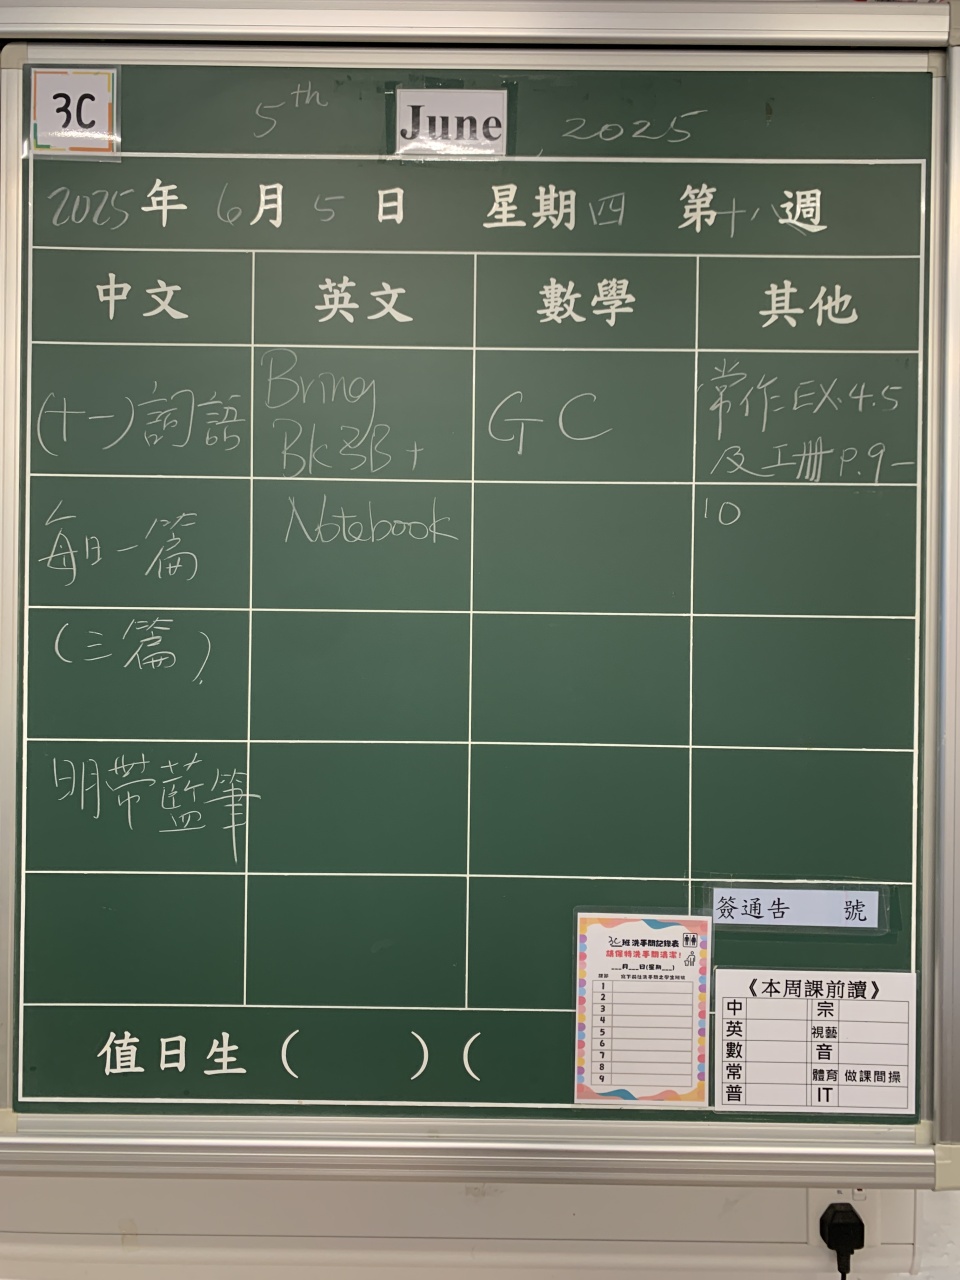 3C
5th June, 2025
2025年 6月 5日 星期四 第十八週
中文 英文 數學 其他
(十一)詞語
每日一篇
(三篇)
明帶藍筆
Bring
Bk3B+
Notebook
GC
常作EX.4.5
及工冊P.9-
10
簽通告 號
3C班洗手間記錄表
請保持洗手間清潔!
___月___日(星期___)
1
2
3
4
5
6
7
8
9
《本周課前讀》
中 宗
英 視藝
數 音
常 體育 做課間操
普 IT
值日生( )(